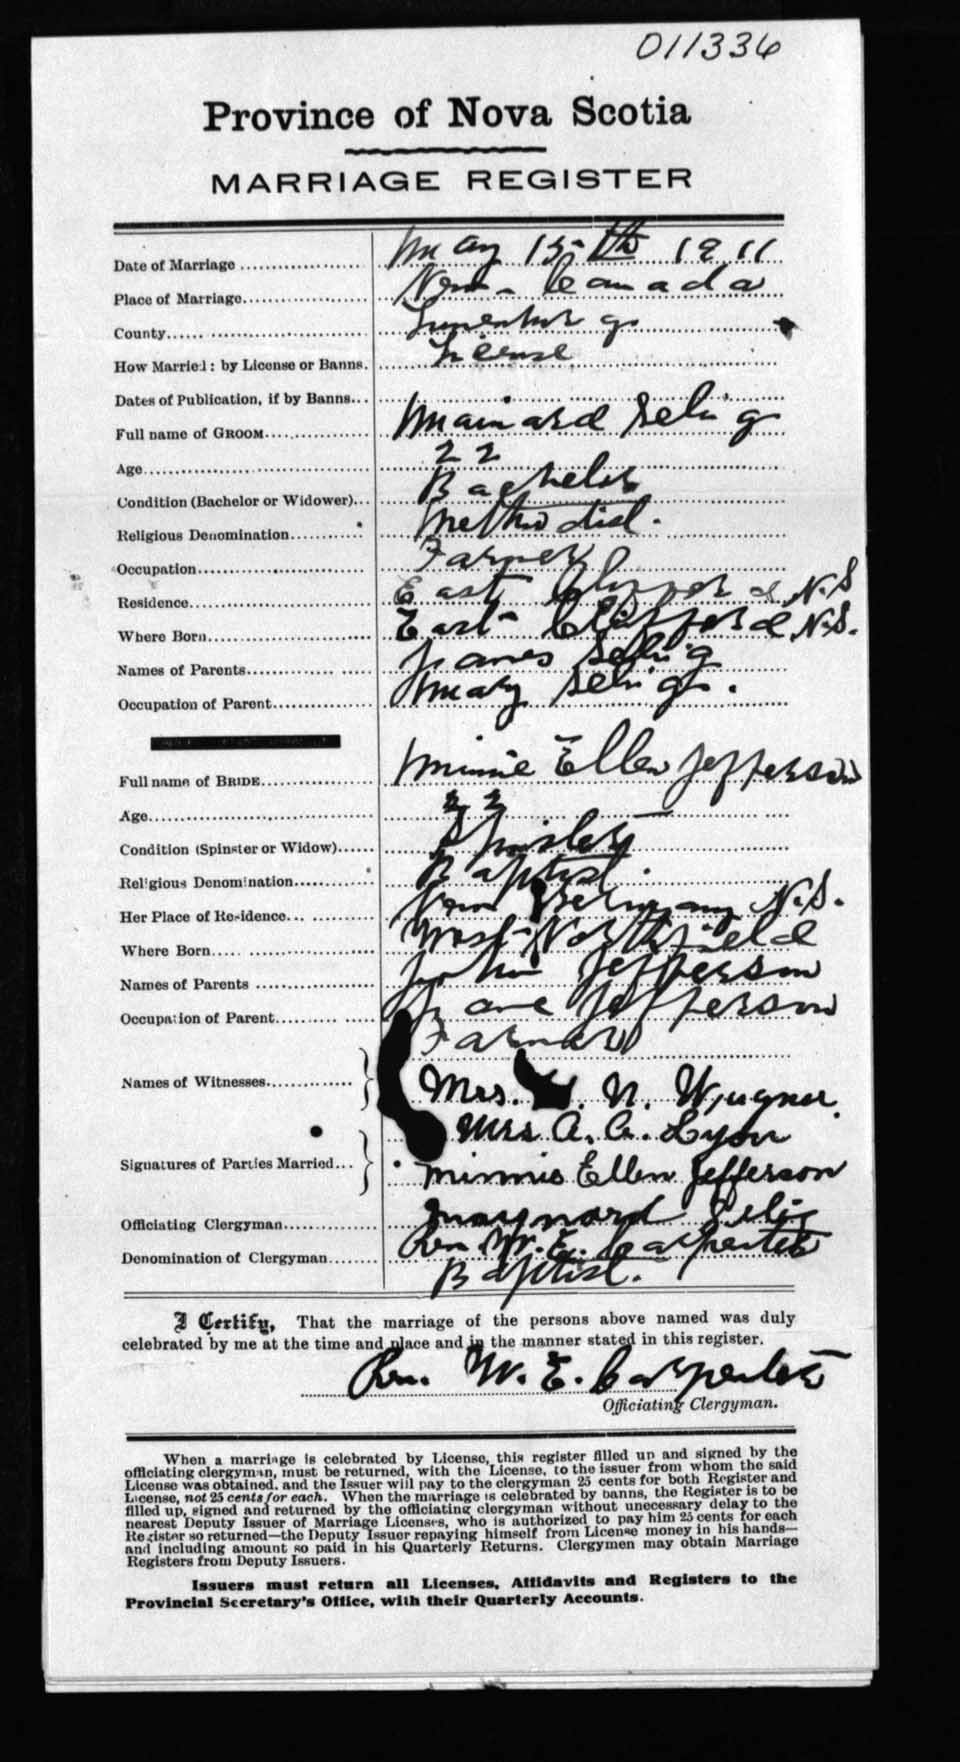 011336
Province of Nova Scotia
MARRIAGE REGISTER
Date of Marriage May 15th 1911
Place of Marriage New Canada
County Lunenburg
How Married: by License or Banns. License
Dates of Publication, if by Banns
Full name of GROOM Mainard Selig
Age 22
Condition (Bachelor or Widower) Bachelor
Religious Denomination Methodist.
Occupation Farmer
Residence East Clifford N.S
Where Born East Clifford N.S.
Names of Parents James Selig
Occupation of Parent Mary Selig.
Full name of BRIDE Minnie Ellen Jefferson
Age 22
Condition (Spinster or Widow) Spinster
Religious Denomination Baptist.
Her Place of Residence New Germany N.S.
Where Born West Northfield
Names of Parents John Jefferson
Occupation of Parent Jane Jefferson
Farmer
Names of Witnesses Mrs. N.
Mrs A. Lyon
Signatures of Parties Married Minnie Ellen Jefferson
Officiating Clergyman Maynard Selig
Rev. W. E. Carpenter
Denomination of Clergyman Baptist.
I Certify, That the marriage of the persons above named was duly
celebrated by me at the time and place and in the manner stated in this register.
Rev. W. E. Carpenter
Officiating Clergyman.
When a marriage is celebrated by License, this register filled up and signed by the
officiating clergyman, must be returned, with the License, to the issuer from whom the said
License was obtained. and the Issuer will pay to the clergyman 25 cents for both Register and
License, not 25 cents for each. When the marriage is celebrated by banns, the Register is to be
filled up, signed and returned by the officiating clergyman without unnecessary delay to the
nearest Deputy Issuer of Marriage Licenses, who is authorized to pay him 25 cents for each
Register so returned—the Deputy Issuer repaying himself from License money in his hands—
and including amount so paid in his Quarterly Returns. Clergymen may obtain Marriage
Registers from Deputy Issuers.
Issuers must return all Licenses, Affidavits and Registers to the
Provincial Secretary's Office, with their Quarterly Accounts.